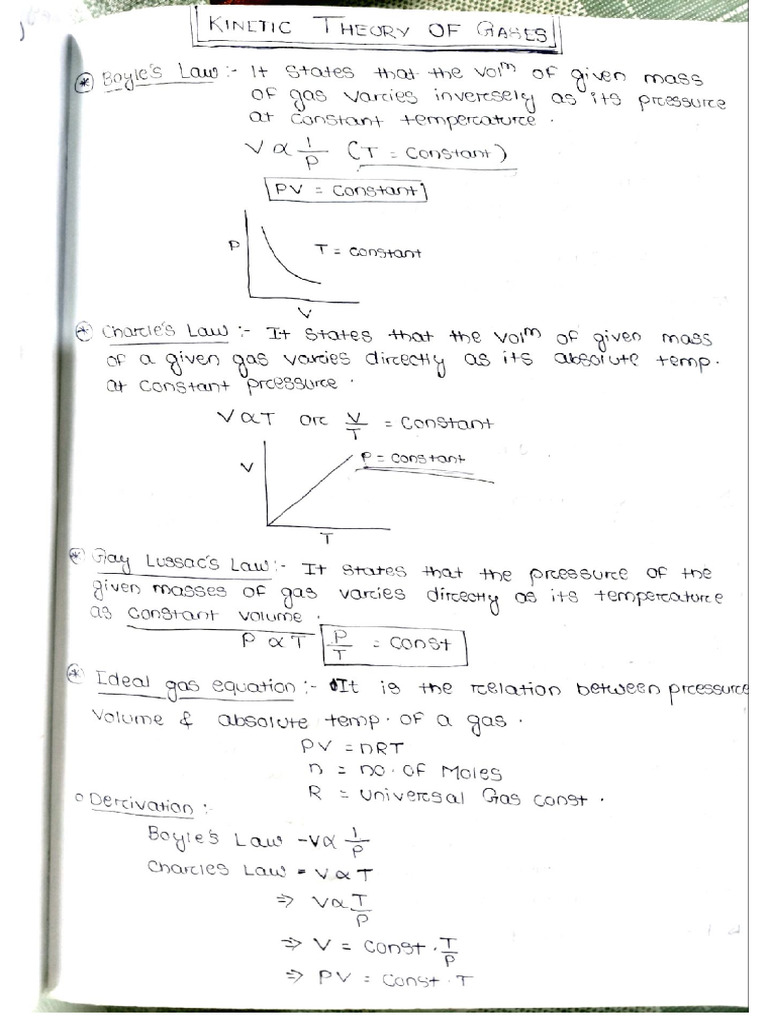 KINETIC THEORY OF GASES
* Boyle's Law :- It states that the volm of given mass
of gas varcies inversely as its pressurce
at constant tempercature.
V ∝ 1/P (T = constant)
PV = constant
P
T = constant
V
* Charcle's Law :- It states that the volm of given mass
of a given gas varcies dircectly as its absolute temp.
at constant prcessurce.
V ∝ T orc V/T = constant
V
P = constant
T
* Gay Lussac's Law :- It states that the prcessurce of the
given masses of gas varcies dircectly as its tempercaturce
as constant volume.
P ∝ T P/T = const
* Ideal gas equation :- It is the rcelation between prcessurce
volume & absolute temp. of a gas.
PV = nRT
n = no. of Moles
R = Universal Gas const.
o Dercivation :-
Boyle's Law - V ∝ 1/P
Charcles Law - V ∝ T
⇒ V ∝ T/P
⇒ V = const . T/P
⇒ PV = const . T